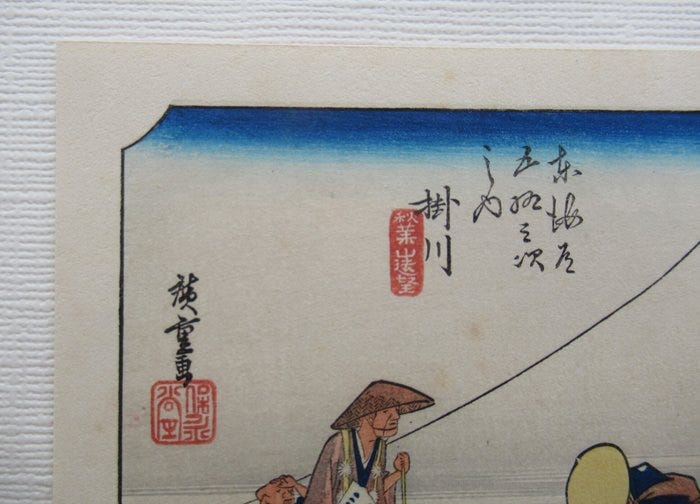 東海道
五拾三次
之内
掛川
秋葉山遠望
廣重画
保永堂